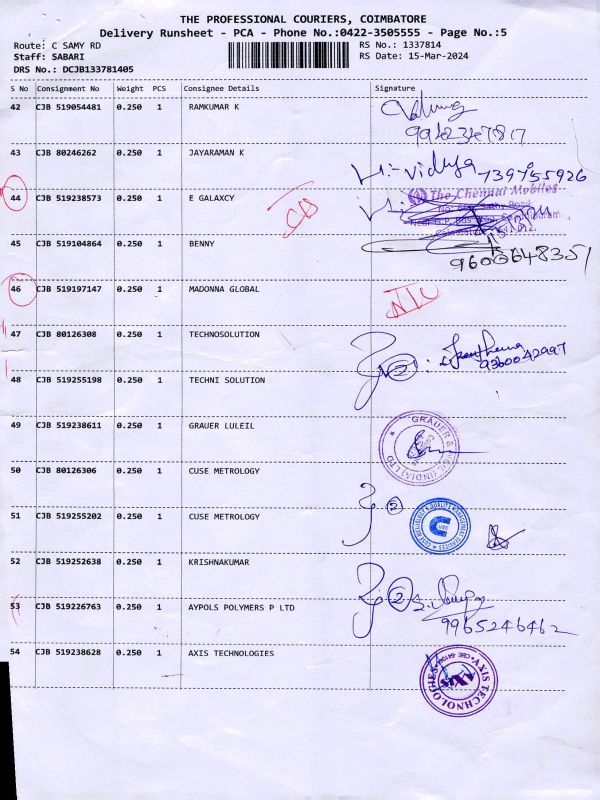 THE PROFESSIONAL COURIERS, COIMBATORE
Delivery Runsheet - PCA - Phone No.:0422-3505555 - Page No.:5
Route: C SAMY RD
RS No.: 1337814
Staff: SABARI
RS Date: 15-Mar-2024
DRS No.: DCJB133781405
S No Consignment No Weight PCS Consignee Details Signature
42 CJB 519054481 0.250 1 RAMKUMAR K
43 CJB 80246262 0.250 1 JAYARAMAN K
Vidhya
44 CJB 519238573 0.250 1 E GALAXCY
The Chennai Mobiles
45 CJB 519104864 0.250 1 BENNY
9600648351
46 CJB 519197147 0.250 1 MADONNA GLOBAL
47 CJB 80126308 0.250 1 TECHNOSOLUTION
2
9360042997
48 CJB 519255198 0.250 1 TECHNI SOLUTION
49 CJB 519238611 0.250 1 GRAUER LULEIL
GRAUER & WEIL (INDIA) LTD
50 CJB 80126306 0.250 1 CUSE METROLOGY
2
51 CJB 519255202 0.250 1 CUSE METROLOGY
52 CJB 519252638 0.250 1 KRISHNAKUMAR
2
53 CJB 519226763 0.250 1 AYPOLS POLYMERS P LTD
9965246462
54 CJB 519238628 0.250 1 AXIS TECHNOLOGIES
AXIS TECHNOLOGIES
AXIS